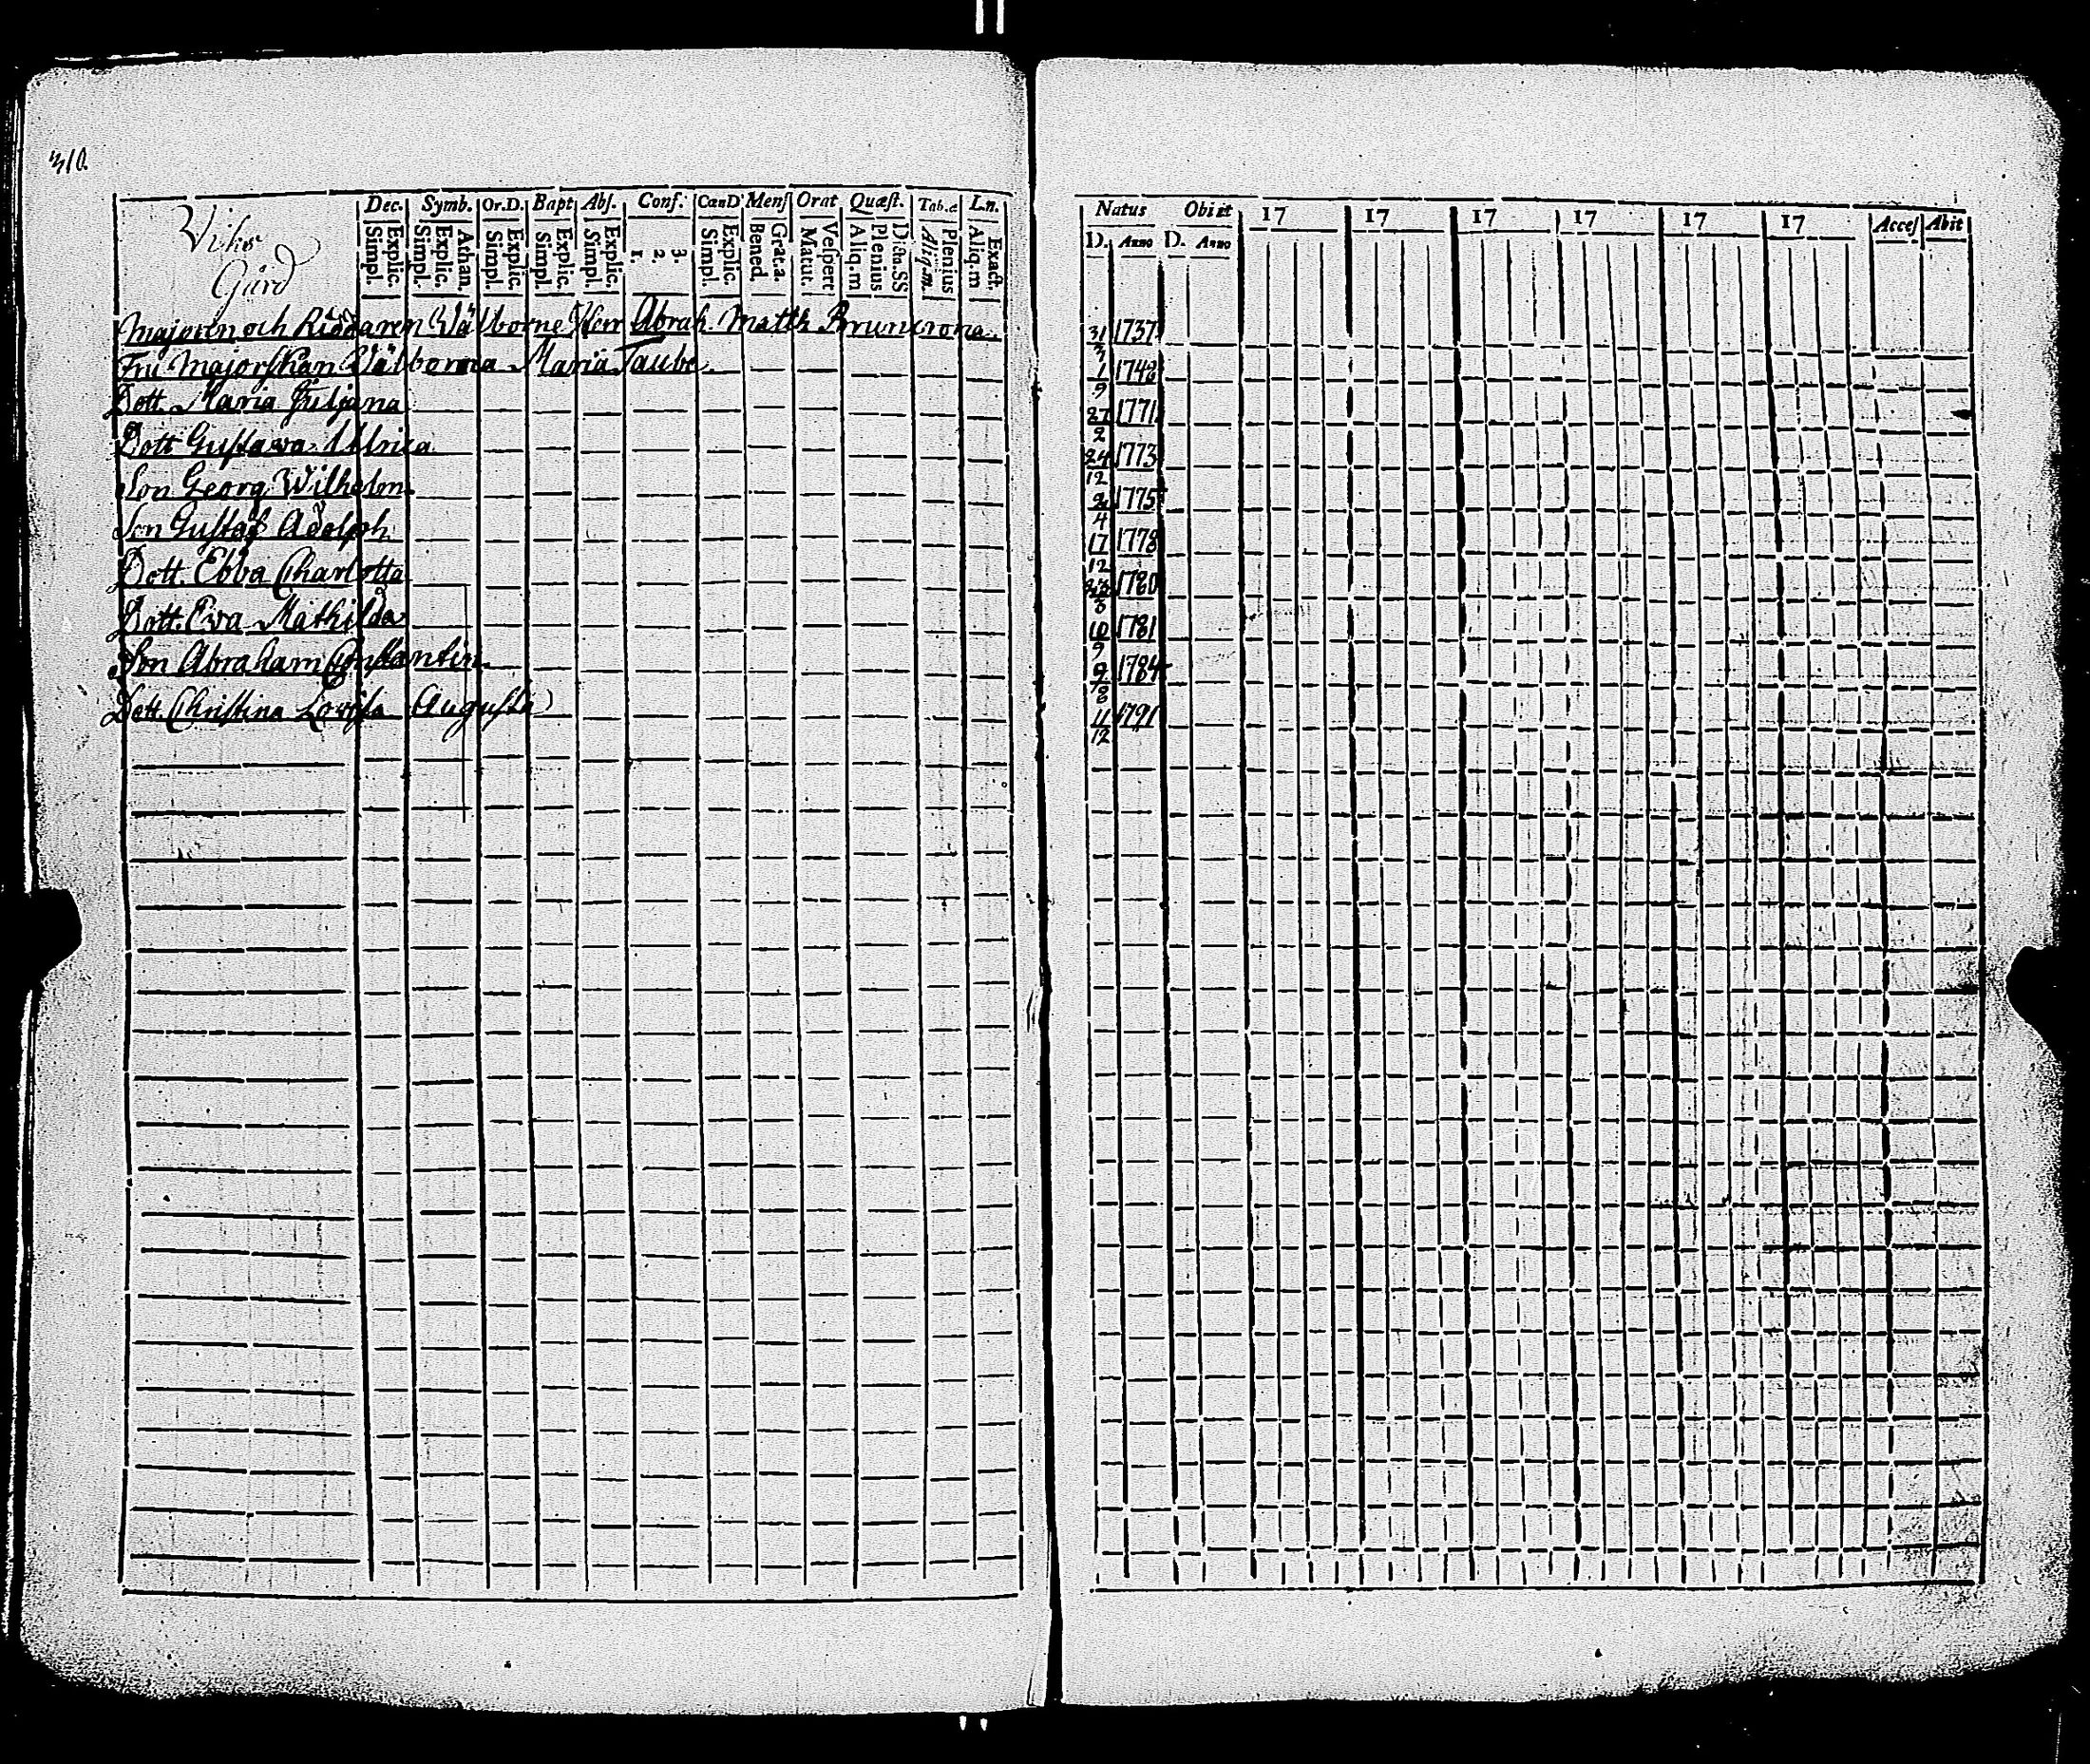 310.
Wiks
Gård
Dec. Symb. Or.D. Bapt Abs. Conf. CœnD Mens Orat Quæst. Tab.æ Ln.
Simpl. Explic. Simpl. Explic. Athan. Simpl. Explic. Simpl. Explic. Simpl. Explic. 1. 2 3. Simpl. Explic. Bened. Grat.a. Matut. Vespert Aliq.m Plenius Dicta.SS Aliq.m. Plenius Aliq.m Exact.
Majoren och Riddaren Wälborne Herr Abrah. Matth. Bruncrona.
Fru Majorskan Wälborna Maria Taube
Dott. Maria Juljana
Dott Gustava Ulrica
Son Georg Wilhelm
Son Gustaf Adolph
Dott. Ebba Charlotta
Dott. Eva Mathilda
Son Abraham Constantin
Dott. Christina Lovisa Augusta
Natus Obiit 17 17 17 17 17 17 Acces Abit
D. Anno D. Anno
31/3 1737
1/9 1748
27/2 1771
24/12 1773
2/4 1775
17/12 1778
1780
10/9 1781
9/8 1784
11/12 1791